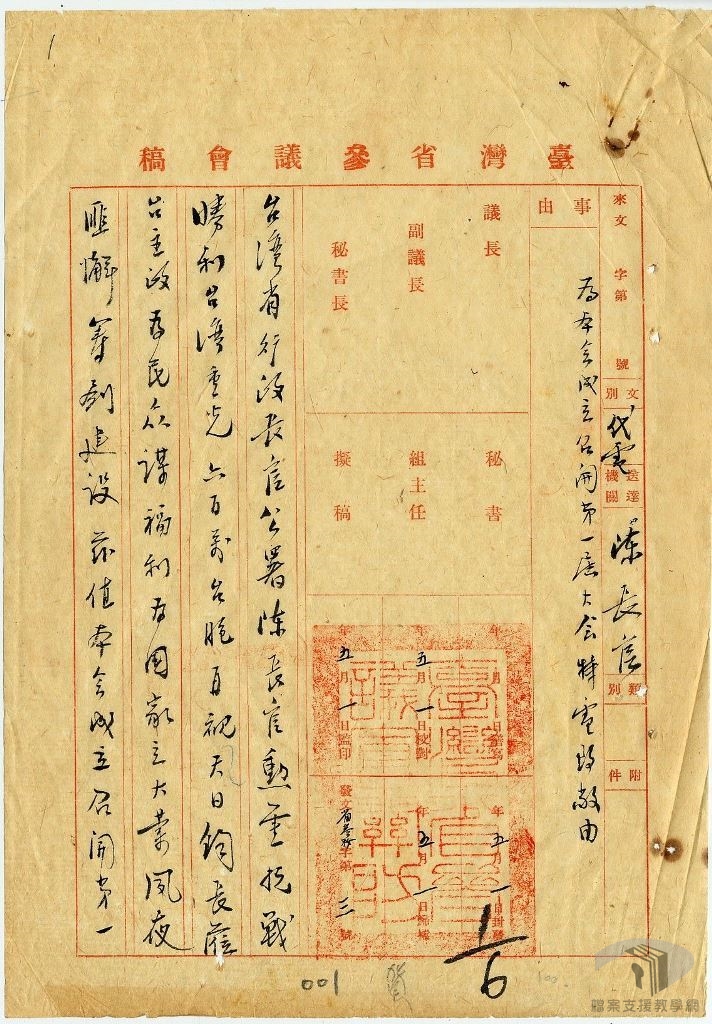 臺灣省參議會稿
來文　字第　號
文別　代電
送達機關　陳長官
類別
附件
事由
為本會成立召開第一屆大會特電致敬由
議長
副議長
秘書長
秘書
組主任
擬稿
年　月　日繕寫
年五月一日校對
年五月一日監印
年五月一日封發
年五月一日歸檔
發文　字第三號
台灣省行政長官公署陳長官勳鑒抗戰
勝利台灣重光六百萬台胞再視天日鈞長蒞
台主政為民众謀福利為国家立大業夙夜
匪懈籌劃建設茲值本会成立召開第一
1/6
001
1
檔案支援教學網